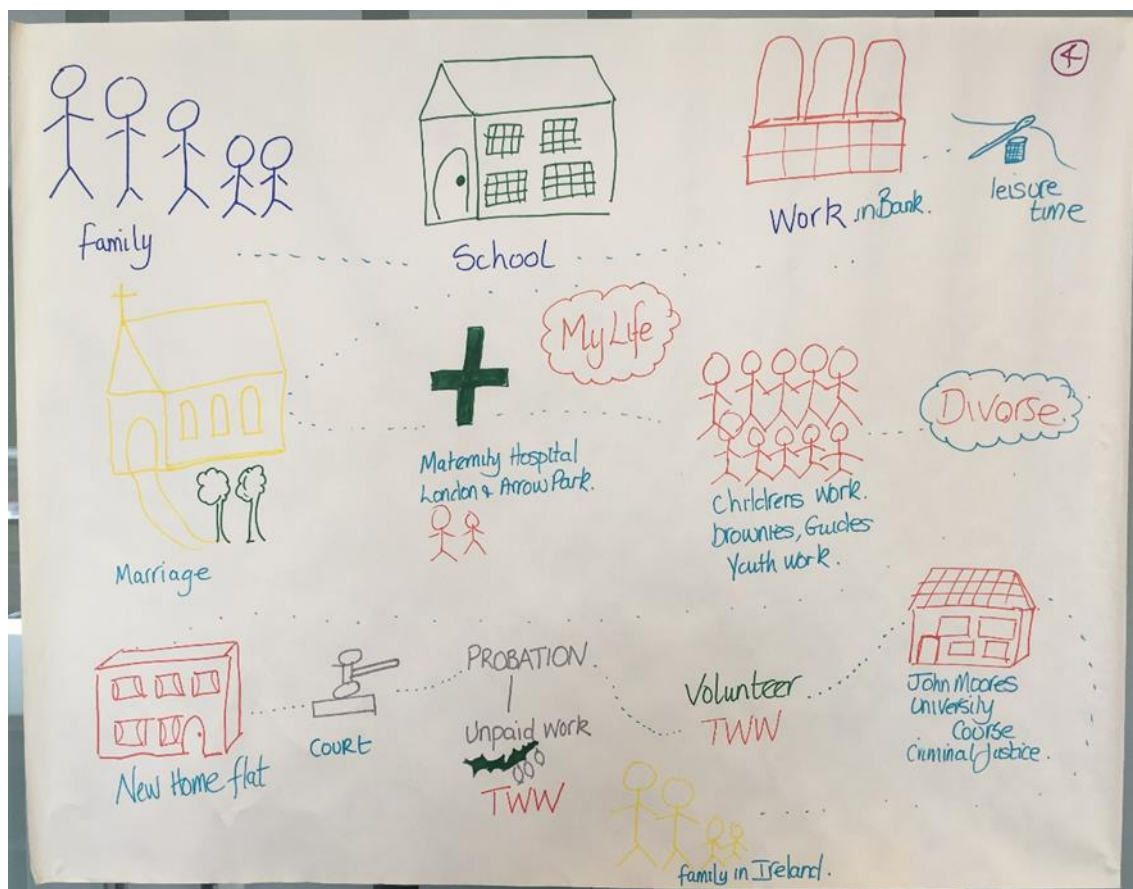 4
family
School
Work in Bank.
leisure
time
My Life
Marriage
Maternity Hospital
London & Arrow Park.
Childrens Work.
brownies, Guides
Youth work.
Divorse.
New Home flat
COURT
PROBATION.
Unpaid work
TWW
Volunteer
TWW
John Moores
University
Course
Criminal Justice.
family in Ireland.